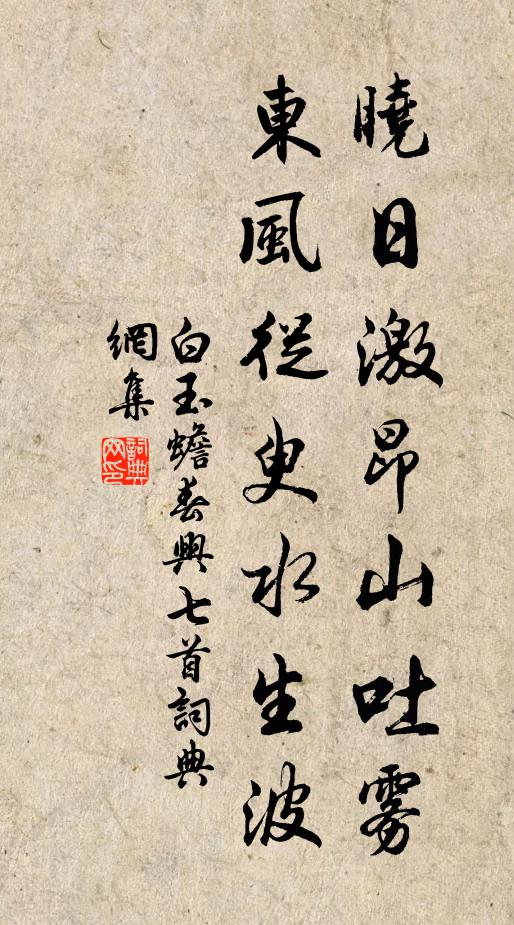 曉日激昂山吐雾
東風從臾水生波
白玉蟾春興七首詞典
網集
詞典
网印